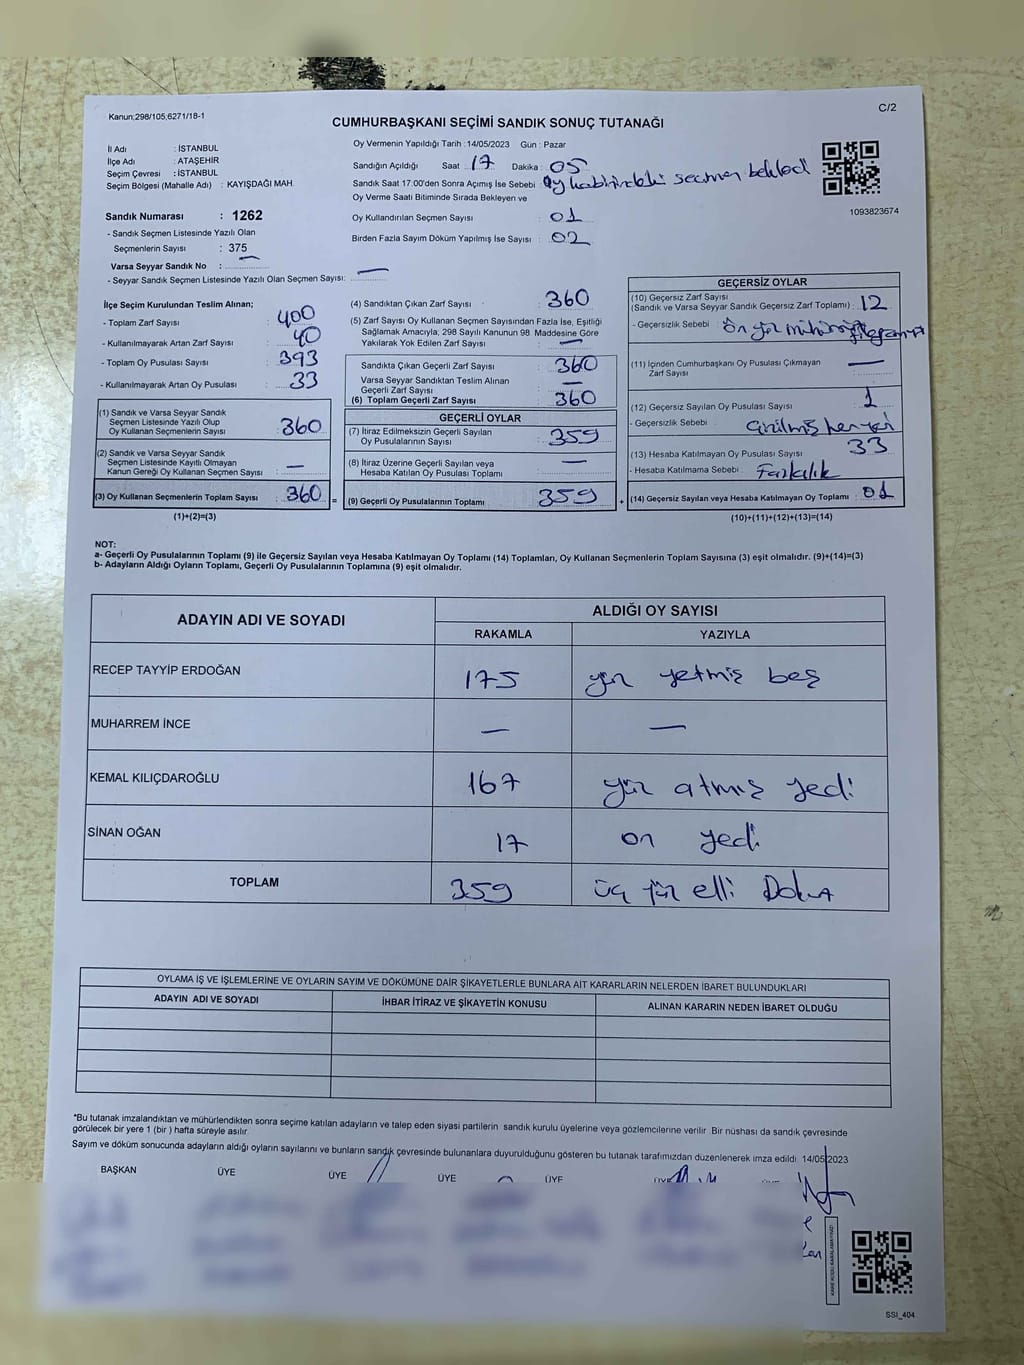 Kanun;298/105;6271/18-1
C/2
CUMHURBAŞKANI SEÇİMİ SANDIK SONUÇ TUTANAĞI
İl Adı : İSTANBUL
İlçe Adı : ATAŞEHİR
Seçim Çevresi : İSTANBUL
Seçim Bölgesi (Mahalle Adı) : KAYIŞDAĞI MAH.
Sandık Numarası : 1262
- Sandık Seçmen Listesinde Yazılı Olan
Seçmenlerin Sayısı : 375
Varsa Seyyar Sandık No : —
- Seyyar Sandık Seçmen Listesinde Yazılı Olan Seçmen Sayısı: —
Oy Vermenin Yapıldığı Tarih :14/05/2023 Gün : Pazar
Sandığın Açıldığı Saat : 17 Dakika : 05
Sandık Saat 17:00'den Sonra Açımış İse Sebebi : Oy kabinindeki seçmen beklendi
Oy Verme Saati Bitiminde Sırada Bekleyen ve
Oy Kullandırılan Seçmen Sayısı : 01
Birden Fazla Sayım Döküm Yapılmış İse Sayısı : 02
1093823674
İlçe Seçim Kurulundan Teslim Alınan;
- Toplam Zarf Sayısı : 400
- Kullanılmayarak Artan Zarf Sayısı : 40
- Toplam Oy Pusulası Sayısı : 393
- Kullanılmayarak Artan Oy Pusulası : 33
(1) Sandık ve Varsa Seyyar Sandık
Seçmen Listesinde Yazılı Olup
Oy Kullanan Seçmenlerin Sayısı : 360
(2) Sandık ve Varsa Seyyar Sandık
Seçmen Listesinde Kayıtlı Olmayan
Kanun Gereği Oy Kullanan Seçmen Sayısı : —
(3) Oy Kullanan Seçmenlerin Toplam Sayısı : 360 =
(1)+(2)=(3)
(4) Sandıktan Çıkan Zarf Sayısı : 360
(5) Zarf Sayısı Oy Kullanan Seçmen Sayısından Fazla İse, Eşitliği
Sağlamak Amacıyla, 298 Sayılı Kanunun 98. Maddesine Göre
Yakılarak Yok Edilen Zarf Sayısı : —
Sandıkta Çıkan Geçerli Zarf Sayısı : 360
Varsa Seyyar Sandıktan Teslim Alınan
Geçerli Zarf Sayısı : —
(6) Toplam Geçerli Zarf Sayısı : 360
GEÇERLİ OYLAR
(7) İtiraz Edilmeksizin Geçerli Sayılan
Oy Pusulalarının Sayısı : 359
(8) İtiraz Üzerine Geçerli Sayılan veya
Hesaba Katılan Oy Pusulası Toplamı : —
(9) Geçerli Oy Pusulalarının Toplamı : 359 +
GEÇERSİZ OYLAR
(10) Geçersiz Zarf Sayısı
(Sandık ve Varsa Seyyar Sandık Geçersiz Zarf Toplamı) : 12
- Geçersizlik Sebebi : Ön yüz
(11) İçinden Cumhurbaşkanı Oy Pusulası Çıkmayan
Zarf Sayısı : —
(12) Geçersiz Sayılan Oy Pusulası Sayısı : 1
- Geçersizlik Sebebi :
(13) Hesaba Katılmayan Oy Pusulası Sayısı : 33
- Hesaba Katılmama Sebebi : Fazlalık
(14) Geçersiz Sayılan veya Hesaba Katılmayan Oy Toplamı : 01
(10)+(11)+(12)+(13)=(14)
NOT:
a- Geçerli Oy Pusulalarının Toplamı (9) ile Geçersiz Sayılan veya Hesaba Katılmayan Oy Toplamı (14) Toplamları, Oy Kullanan Seçmenlerin Toplam Sayısına (3) eşit olmalıdır. (9)+(14)=(3)
b- Adayların Aldığı Oyların Toplamı, Geçerli Oy Pusulalarının Toplamına (9) eşit olmalıdır.
ADAYIN ADI VE SOYADI
ALDIĞI OY SAYISI
RAKAMLA YAZIYLA
RECEP TAYYİP ERDOĞAN 175 yüz yetmiş beş
MUHARREM İNCE — —
KEMAL KILIÇDAROĞLU 167 yüz atmış yedi
SİNAN OĞAN 17 on yedi
TOPLAM 359 üç yüz elli Dokuz
OYLAMA İŞ VE İŞLEMLERİNE VE OYLARIN SAYIM VE DÖKÜMÜNE DAİR ŞİKAYETLERLE BUNLARA AİT KARARLARIN NELERDEN İBARET BULUNDUKLARI
ADAYIN ADI VE SOYADI İHBAR İTİRAZ VE ŞİKAYETİN KONUSU ALINAN KARARIN NEDEN İBARET OLDUĞU
*Bu tutanak imzalandıktan ve mühürlendikten sonra seçime katılan adayların ve talep eden siyasi partilerin sandık kurulu üyelerine veya gözlemcilerine verilir. Bir nüshası da sandık çevresinde
görülecek bir yere 1 (bir ) hafta süreyle asılır.
Sayım ve döküm sonucunda adayların aldığı oyların sayılarını ve bunların sandık çevresinde bulunanlara duyurulduğunu gösteren bu tutanak tarafımızdan düzenlenerek imza edildi. 14/05/2023
BAŞKAN ÜYE ÜYE ÜYE ÜYE ÜYE
SSI_404